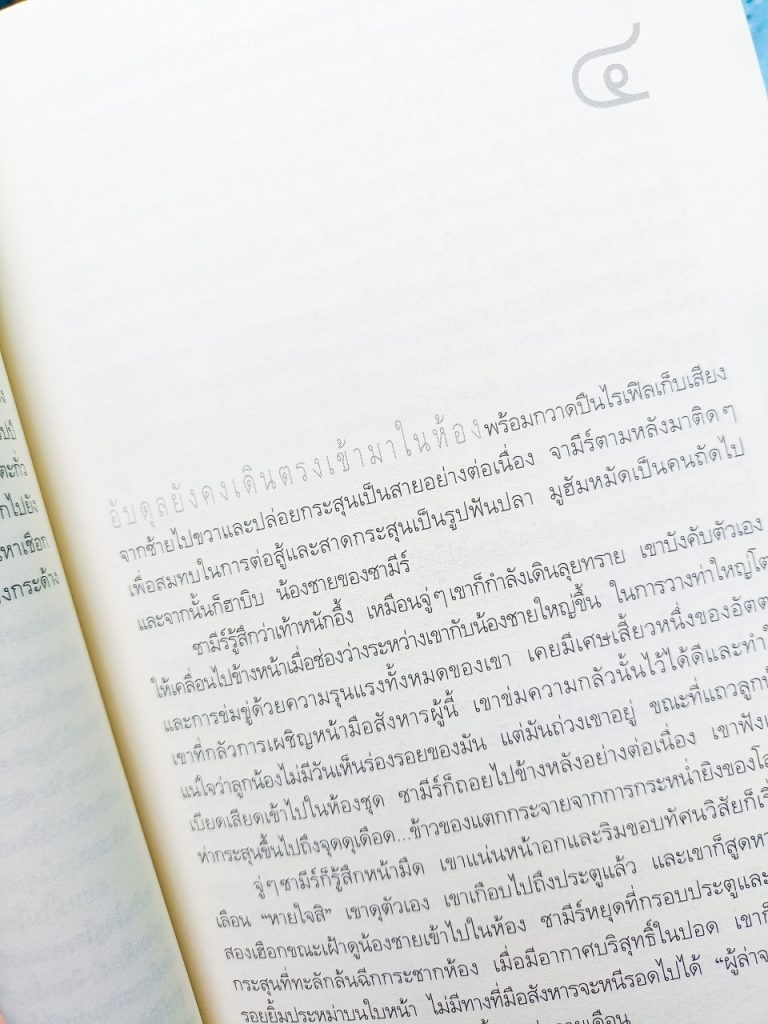 ๔
อับดุลยังคงเดินตรงเข้ามาในห้องพร้อมกวาดปืนไรเฟิลเก็บเสียง
จากซ้ายไปขวาและปล่อยกระสุนเป็นสายอย่างต่อเนื่อง จามีร์ตามหลังมาติดๆ
เพื่อสมทบในการต่อสู้และสาดกระสุนเป็นรูปฟันปลา มูฮัมหมัดเป็นคนถัดไป
และจากนั้นก็ฮาบิบ น้องชายของซามีร์
ซามีร์รู้สึกว่าเท้าหนักอึ้ง เหมือนจู่ๆเขาก็กำลังเดินลุยทราย เขาบังคับตัวเอง
ให้เคลื่อนไปข้างหน้าเมื่อช่องว่างระหว่างเขากับน้องชายใหญ่ขึ้น ในการวางท่าใหญ่โต
และการข่มขู่ด้วยความรุนแรงทั้งหมดของเขา เคยมีเศษเสี้ยวหนึ่งของอัตต
เขาที่กลัวการเผชิญหน้ามือสังหารผู้นี้ เขาข่มความกลัวนั้นไว้ได้ดีและทำใ
แน่ใจว่าลูกน้องไม่มีวันเห็นร่องรอยของมัน แต่มันถ่วงเขาอยู่ ขณะที่แถวลูกน
เบียดเสียดเข้าไปในห้องชุด ซามีร์ก็ถอยไปข้างหลังอย่างต่อเนื่อง เขาฟังเ
ห่ากระสุนขึ้นไปถึงจุดดุเดือด...ข้าวของแตกกระจายจากการกระหน่ำยิงของโล
จู่ๆซามีร์ก็รู้สึกหน้ามืด เขาแน่นหน้าอกและริมขอบทัศนวิสัยก็เริ่
เลือน “หายใจสิ” เขาดุตัวเอง เขาเกือบไปถึงประตูแล้ว และเขาก็สูดหา
สองเฮือกขณะเฝ้าดูน้องชายเข้าไปในห้อง ซามีร์หยุดที่กรอบประตูและ
กระสุนที่ทะลักล้นฉีกกระชากห้อง เมื่อมีอากาศบริสุทธิ์ในปอด เขาก็
รอยยิ้มประหม่าบนใบหน้า ไม่มีทางที่มือสังหารจะหนีรอดไปได้ “ผู้ล่าจ